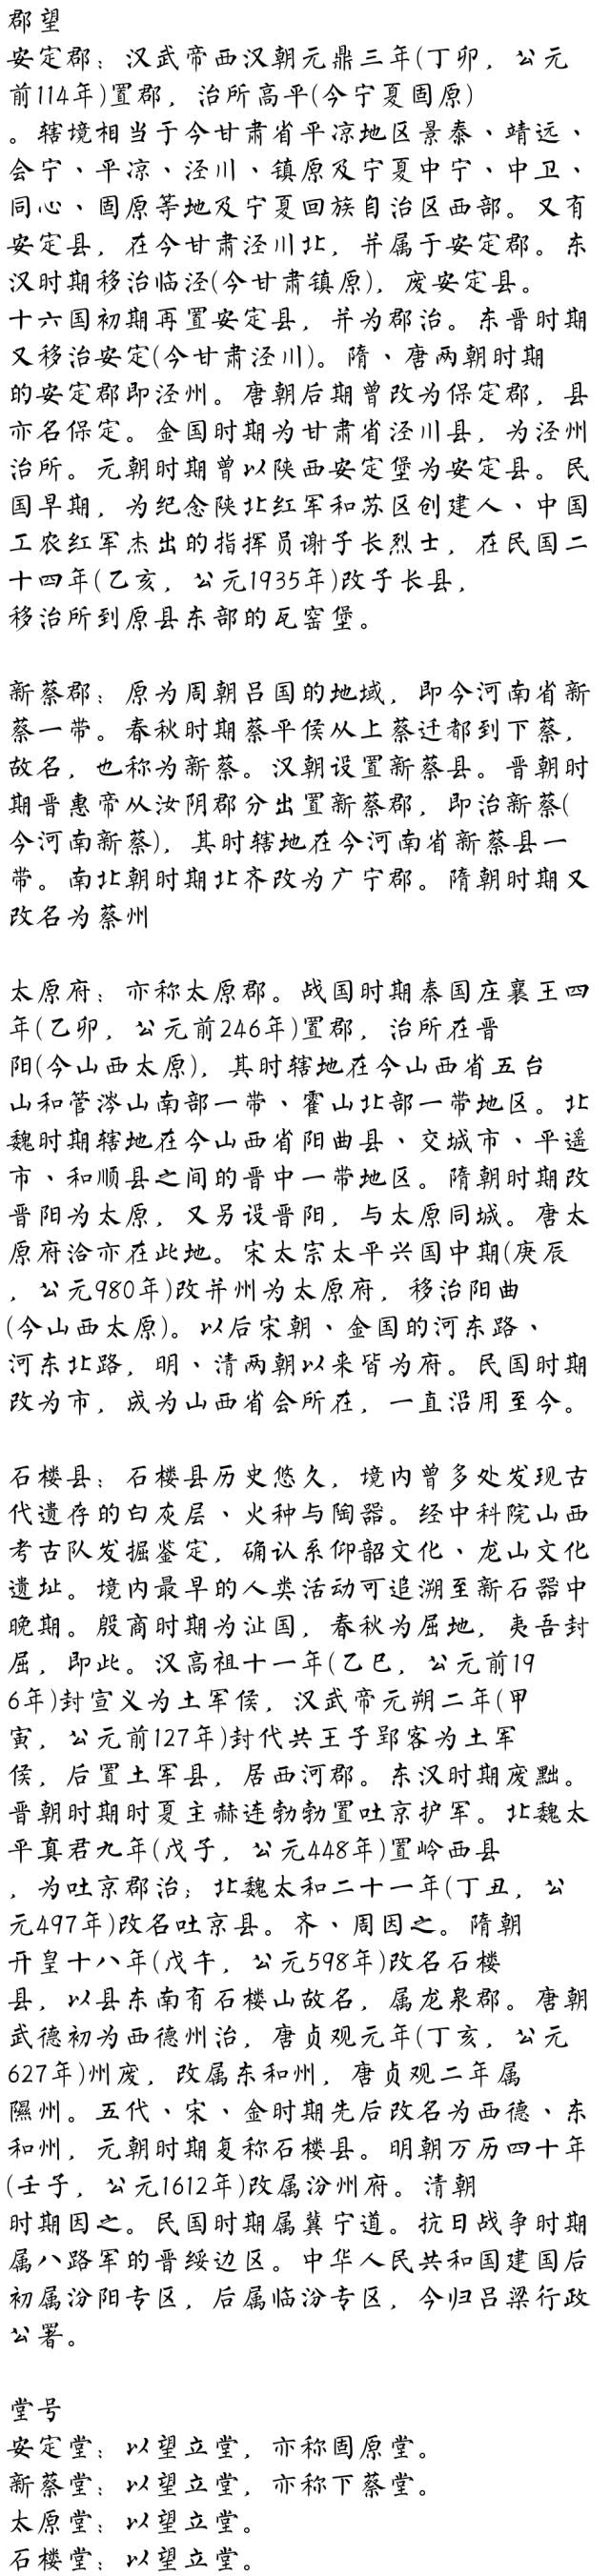 郡望
安定郡：汉武帝西汉朝元鼎三年(丁卯，公元
前114年)置郡，治所高平(今宁夏固原)
。辖境相当于今甘肃省平凉地区景泰、靖远、
会宁、平凉、泾川、镇原及宁夏中宁、中卫、
同心、固原等地及宁夏回族自治区西部。又有
安定县，在今甘肃泾川北，并属于安定郡。东
汉时期移治临泾(今甘肃镇原)，废安定县。
十六国初期再置安定县，并为郡治。东晋时期
又移治安定(今甘肃泾川)。隋、唐两朝时期
的安定郡即泾州。唐朝后期曾改为保定郡，县
亦名保定。金国时期为甘肃省泾川县，为泾州
治所。元朝时期曾以陕西安定堡为安定县。民
国早期，为纪念陕北红军和苏区创建人、中国
工农红军杰出的指挥员谢子长烈士，在民国二
十四年(乙亥，公元1935年)改子长县，
移治所到原县东部的瓦窑堡。

新蔡郡：原为周朝吕国的地域，即今河南省新
蔡一带。春秋时期蔡平侯从上蔡迁都到下蔡，
故名，也称为新蔡。汉朝设置新蔡县。晋朝时
期晋惠帝从汝阴郡分出置新蔡郡，即治新蔡(
今河南新蔡)，其时辖地在今河南省新蔡县一
带。南北朝时期北齐改为广宁郡。隋朝时期又
改名为蔡州

太原府：亦称太原郡。战国时期秦国庄襄王四
年(乙卯，公元前246年)置郡，治所在晋
阳(今山西太原)，其时辖地在今山西省五台
山和管涔山南部一带、霍山北部一带地区。北
魏时期辖地在今山西省阳曲县、交城市、平遥
市、和顺县之间的晋中一带地区。隋朝时期改
晋阳为太原，又另设晋阳，与太原同城。唐太
原府洽亦在此地。宋太宗太平兴国中期(庚辰
，公元980年)改并州为太原府，移治阳曲
(今山西太原)。以后宋朝、金国的河东路、
河东北路，明、清两朝以来皆为府。民国时期
改为市，成为山西省会所在，一直沿用至今。

石楼县：石楼县历史悠久，境内曾多处发现古
代遗存的白灰层、火种与陶器。经中科院山西
考古队发掘鉴定，确认系仰韶文化、龙山文化
遗址。境内最早的人类活动可追溯至新石器中
晚期。殷商时期为沚国，春秋为屈地，夷吾封
屈，即此。汉高祖十一年(乙巳，公元前19
6年)封宣义为土军侯，汉武帝元朔二年(甲
寅，公元前127年)封代共王子郢客为土军
侯，后置土军县，居西河郡。东汉时期废黜。
晋朝时期时夏主赫连勃勃置吐京护军。北魏太
平真君九年(戊子，公元448年)置岭西县
，为吐京郡治；北魏太和二十一年(丁丑，公
元497年)改名吐京县。齐、周因之。隋朝
开皇十八年(戊午，公元598年)改名石楼
县，以县东南有石楼山故名，属龙泉郡。唐朝
武德初为西德州治，唐贞观元年(丁亥，公元
627年)州废，改属东和州，唐贞观二年属
隰州。五代、宋、金时期先后改名为西德、东
和州，元朝时期复称石楼县。明朝万历四十年
(壬子，公元1612年)改属汾州府。清朝
时期因之。民国时期属冀宁道。抗日战争时期
属八路军的晋绥边区。中华人民共和国建国后
初属汾阳专区，后属临汾专区，今归吕梁行政
公署。

堂号
安定堂：以望立堂，亦称固原堂。
新蔡堂：以望立堂，亦称下蔡堂。
太原堂：以望立堂。
石楼堂：以望立堂。